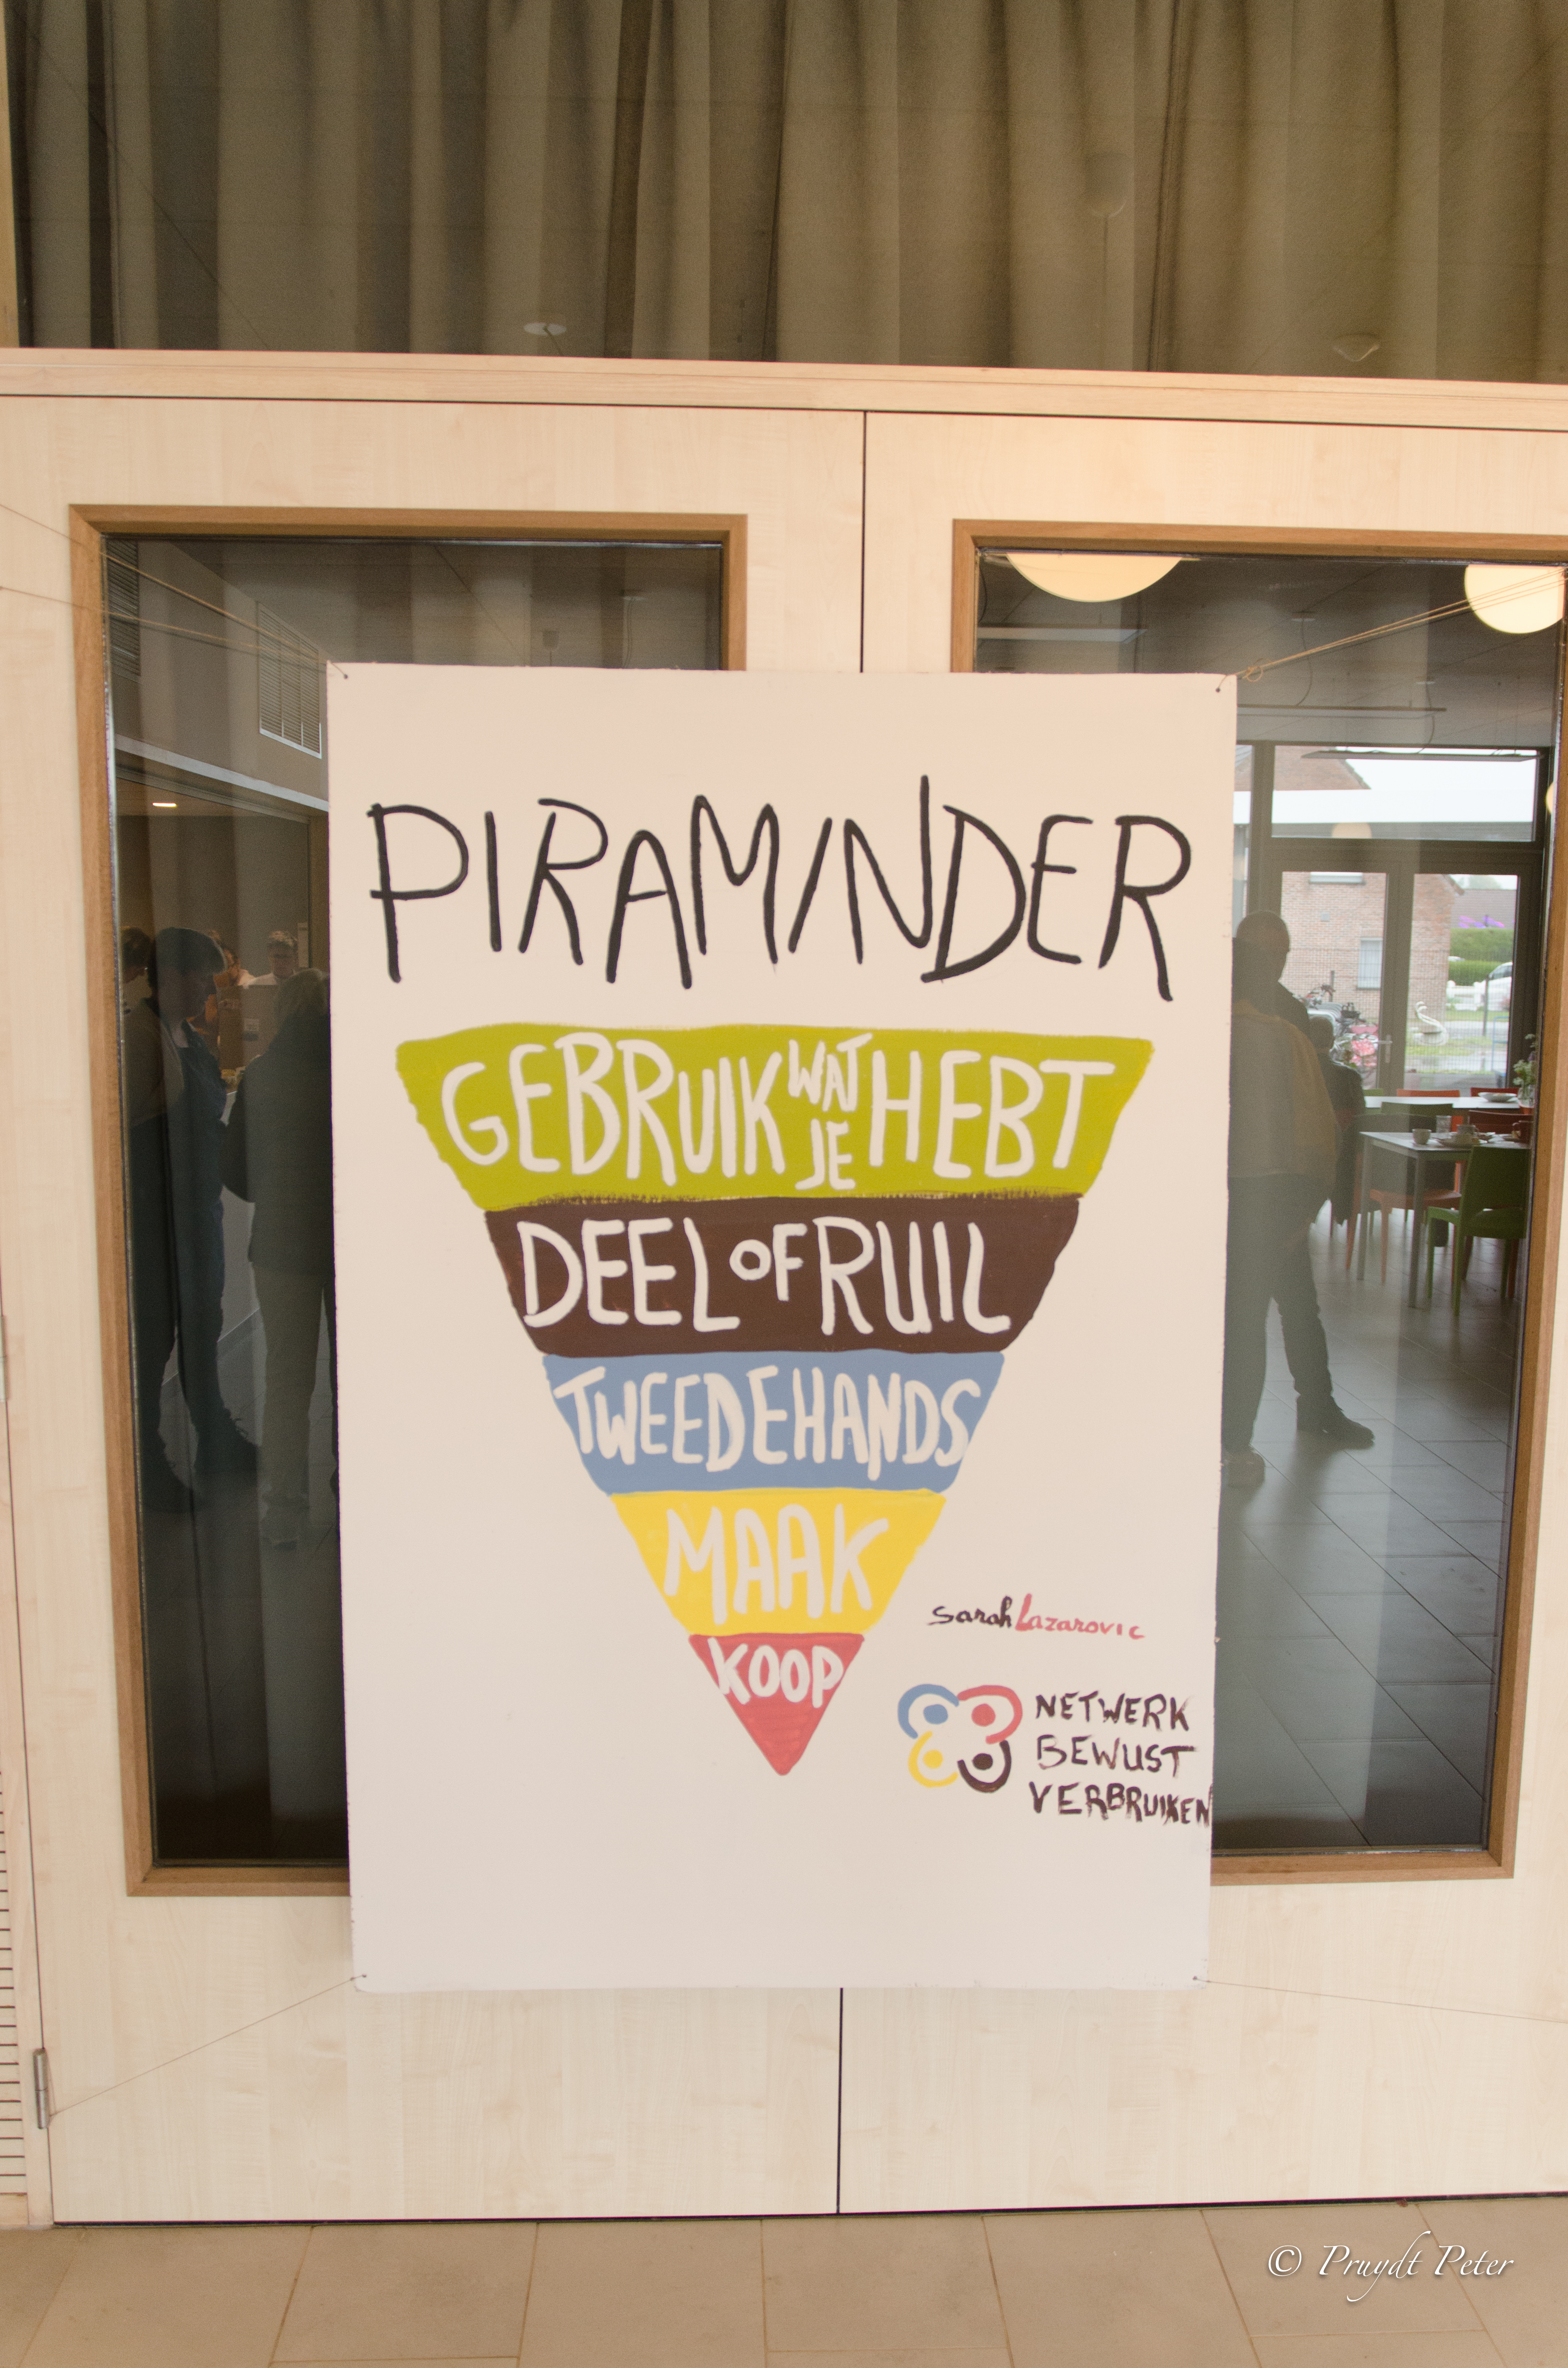 PIRAMINDER
GEBRUIK WAT JE HEBT
DEEL OF RUIL
TWEEDEHANDS
MAAK
KOOP
Sarah Lazarovic
NETWERK
BEWUST
VERBRUIKEN
© Pruydt Peter